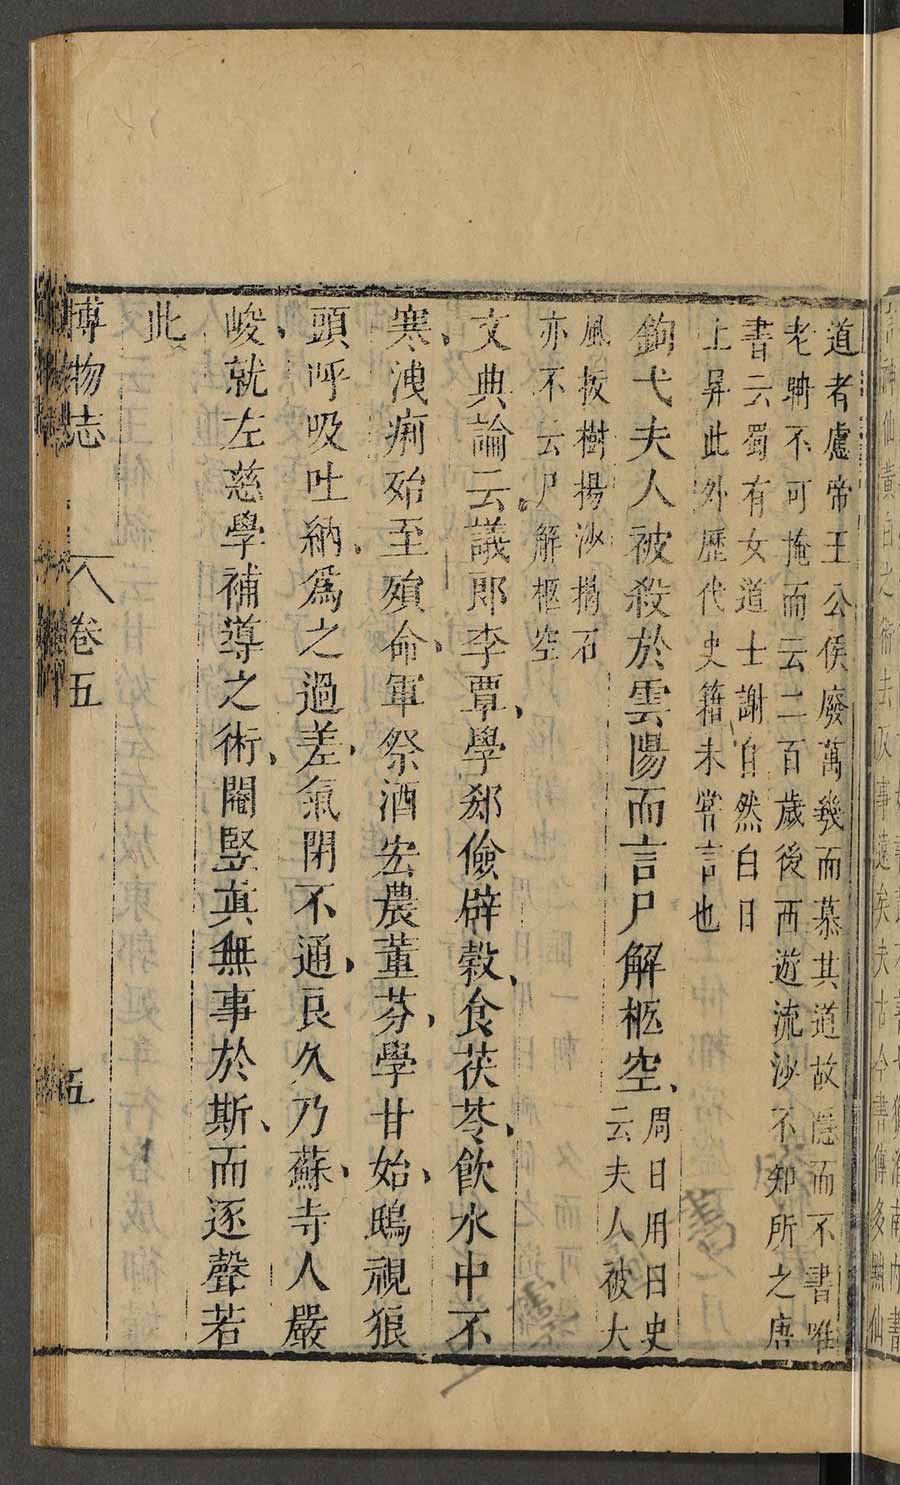 道者慮帝王公侯廢萬幾而慕其道故隱而不書唯
老聃不可掩而云二百歲後西遊流沙不知所之唐
書云蜀有女道士謝自然白日
上昇此外歷代史籍未常言也
鉤弋夫人被殺於雲陽而言尸解柩空、
周日用曰史
云夫人被大
風拔樹揚沙揭石
亦不云尸解柩空
文典論云議郎李覃、學郄儉辟穀、食茯苓、飲水中不
寒、洩痢殆至殞命、軍祭酒宏農董芬、學甘始、鴟視狼
頭呼吸吐納、爲之過差、氣閉不通、良久乃蘇、寺人嚴
峻、就左慈學補導之術、閹竪眞無事於斯、而逐聲若
此
博物志
卷五
五